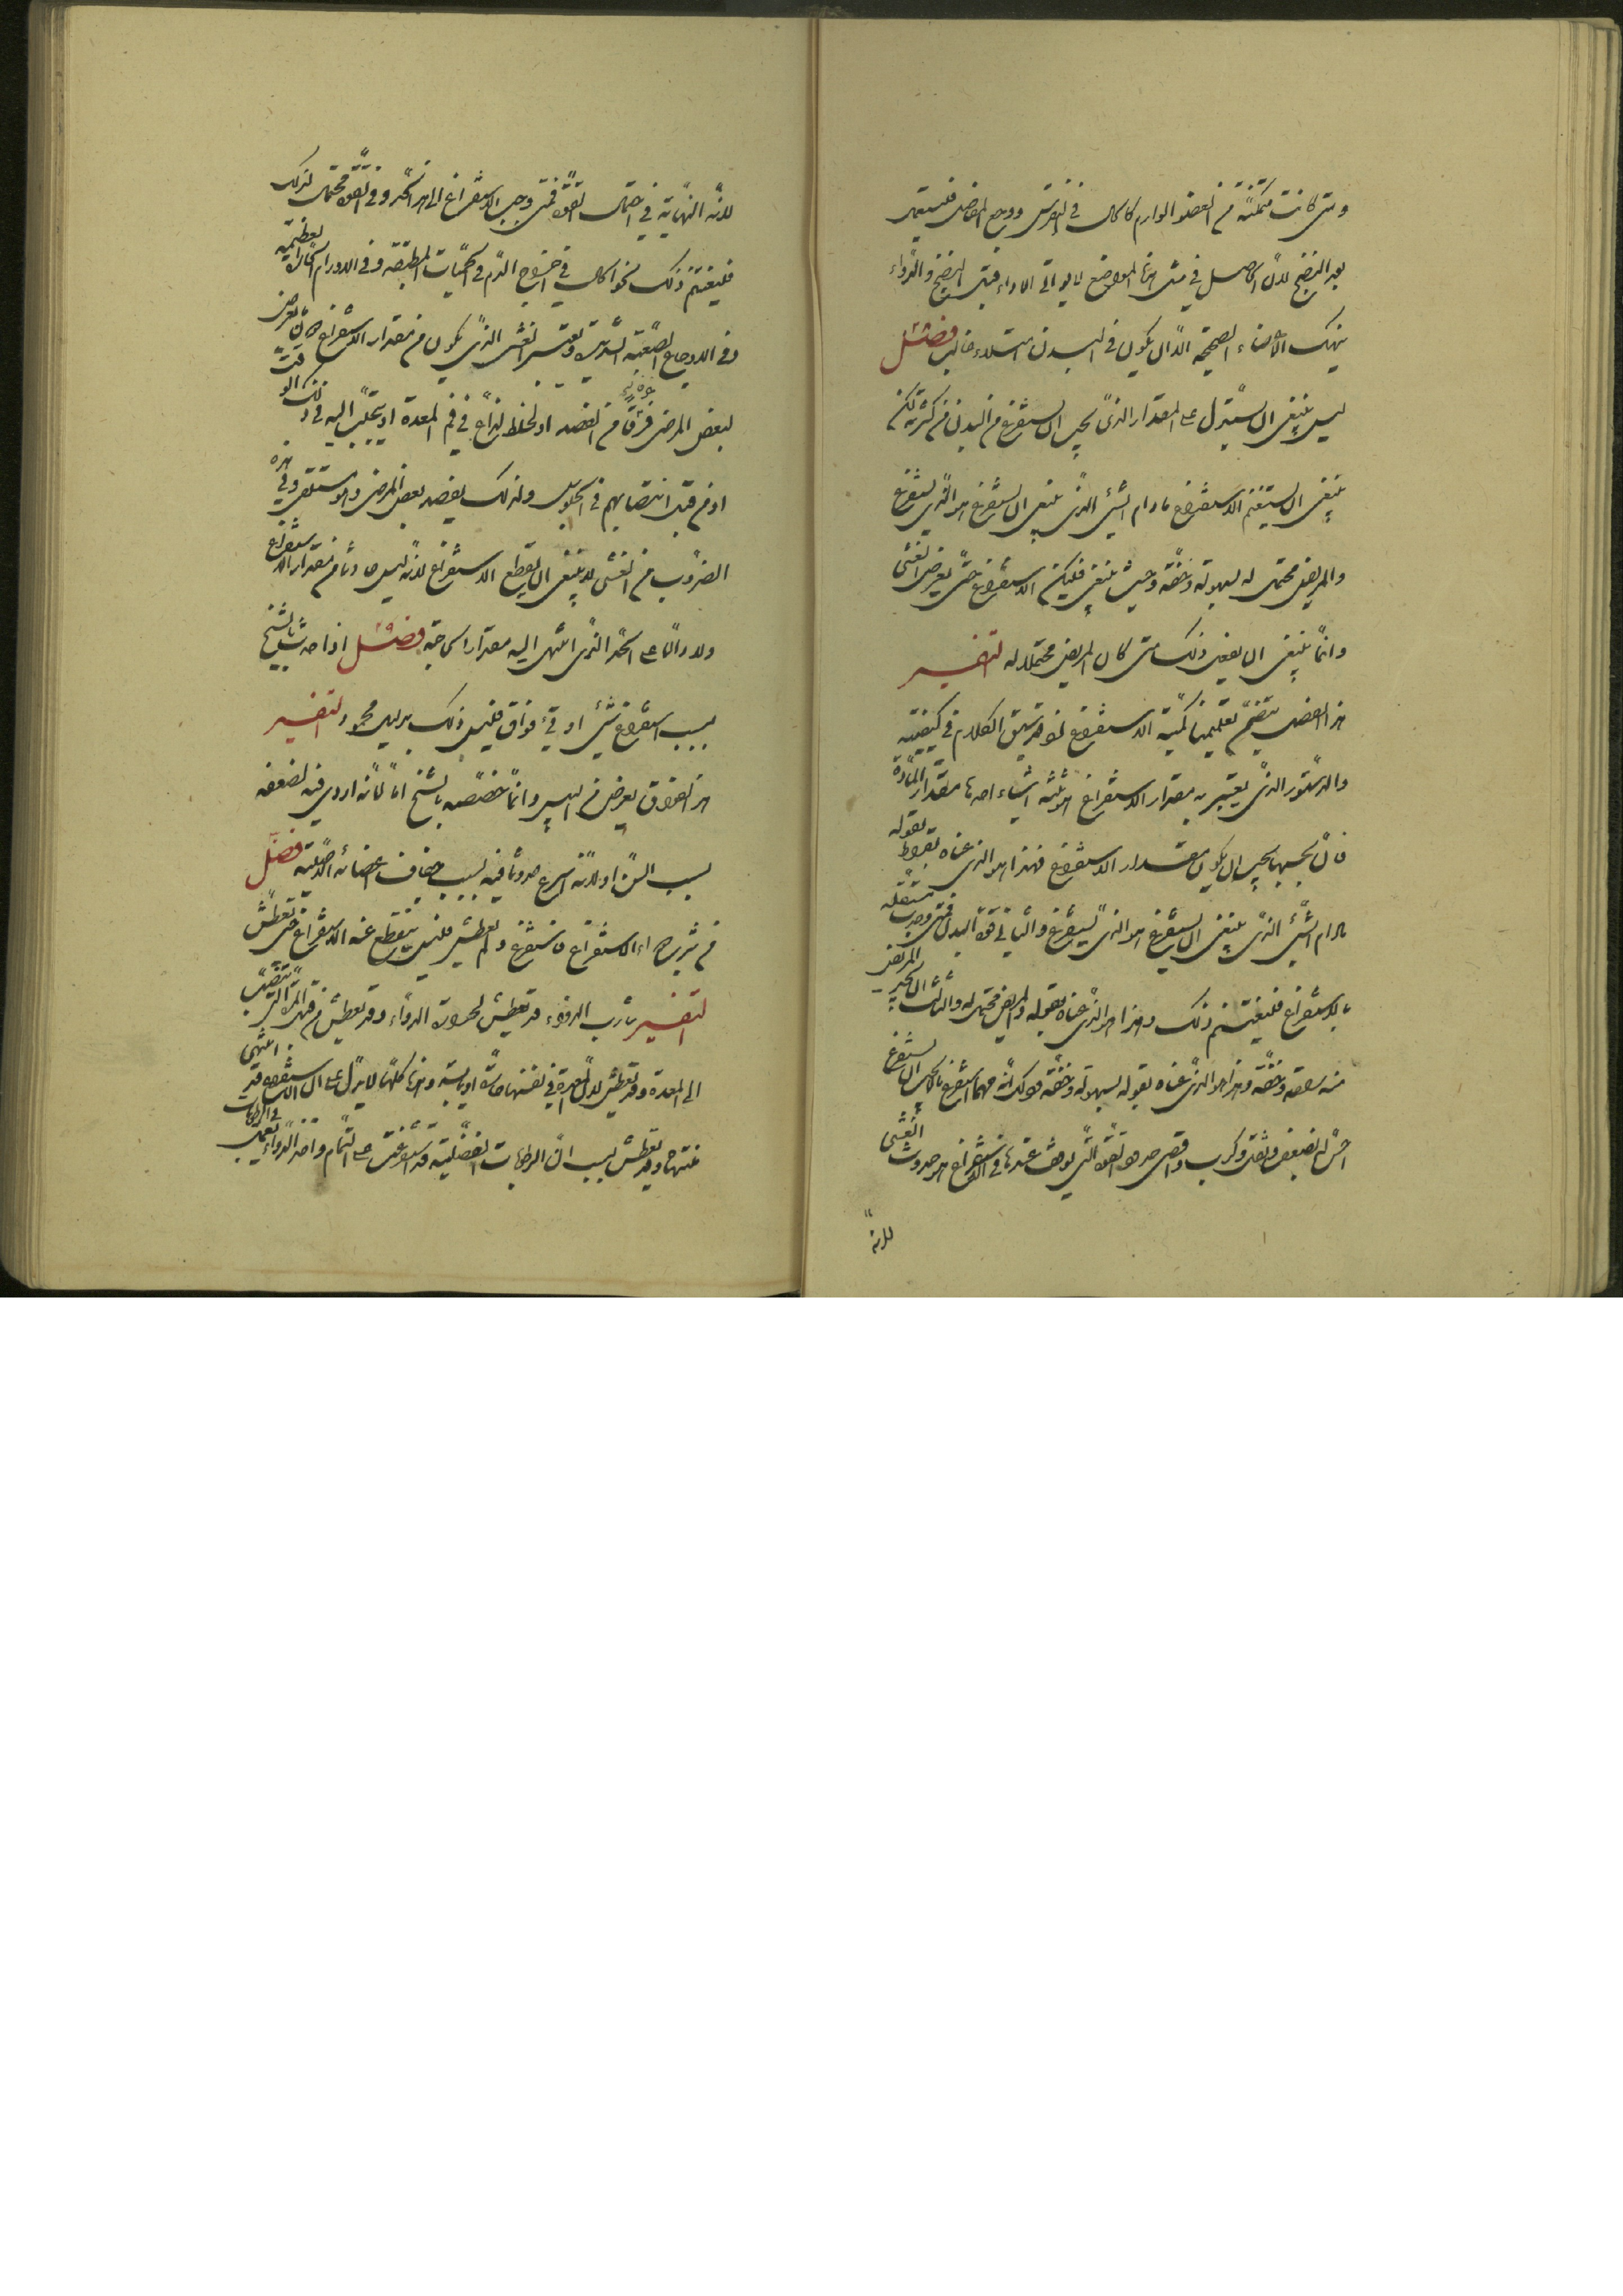 ومتى كانت متمكنة في العضو الوارم كالحال في النقرس ووجع المفاصل فليستعمل
بعد النضج لان الحاصل في مثل هذه المواضع لا يواتي الدواء قبل النضج والدواء
ينهك الاعضاء الصحيحة الا ان يكون في البدن امتلاء غالب فصل
ليس ينبغي ان يستدل على المقدار الذي يجب ان يستفرغ من البدن من كثرته لكن
ينبغي ان يستغنم الاستفراغ ما دام الشيء الذي ينبغي ان يستفرغ هو الذي يستفرغ
والمريض محتمل له بسهولة وخفة وحيث ينبغي فليكن الاستفراغ حتى يعرض الغشي
وانما ينبغي ان يفعل ذلك متى كان المريض محتملا له التفسير
هذا الفصل يتضمن تعليمنا كمية الاستفراغ لنوفر سبق الكلام في كيفيته
والدستور الذي يعتبر به مقدار الاستفراغ هو ثلثة اشياء احدها مقدار المادة
فان بحسبها يجب ان يكون مقدار الاستفراغ فهذا هو الذي عناه بقراط بقوله
ما دام الشيء الذي ينبغي ان يستفرغ هو الذي يستفرغ والثاني قوة البدن فمتى وجدت مستقلة
بالاستفراغ فليغتنم ذلك وهذا هو الذي عناه بقوله والمريض محتمل له والثالث ان يجد المريض
منه سعة وخفة وهذا هو الذي عناه بقوله بسهولة وخفة وذلك انه مهما استفرغ ما يجب ان يستفرغ
احس الضعف وثقل وكرب واقصى حدود القوة التي يوقف عندها في الاستفراغ هو حدوث الغشي
لانه
لانه النهاية في احتمال القوة فمتى وجب الاستفراغ الى هذا الحد وفي القوة محتمل لذلك
فليغتنم ذلك نحو الحال في اخراج الدم في الحميات المطبقة وفي الاورام الحارة العظيمة
وفي الاوجاع الصعبة الشديدة ويعتبر الغشي الذي يكون من مقدار الاستفراغ فانه قد يعرض
لبعض المرضى فرقا من الفصد او لخلط لذاع في فم المعدة او يتحلب اليه في ذلك الوقت
او من قبل انتصابهم في الجلوس ولذلك يفصد بعض المرضى وهو مستلق وفي هذه
الضروب من الغشي لا ينبغي ان يقطع الاستفراغ لانه ليس حادثا من مقدار الاستفراغ
ولا دالا على الحد الذي انتهى اليه مقدار الحاجة فصل اذا حدث بالشيخ
بسبب استفراغ شيء او قيء فواق فليس ذلك بدليل محمود التفسير
هذا الفواق يعرض من اليبس وانما خصصه بالشيخ اما لانه اردى فيه لضعفه
بسبب السن او لانه اسرع حدوثا فيه بسبب جفاف اعضائه الاصلية فصل
من شرب دواء الاستفراغ فاستفرغ ولم يعطش فليس ينقطع عنه الاستفراغ حتى يعطش
التفسير شارب الدواء قد يعطش لحرارة الدواء وقد يعطش من قبل المرار التي تنصب
الى المعدة وقد يعطش لان المعدة في نفسها حارة او يابسة وهذه كلها لا يدل على ان الاستفراغ قد انتهى
منتهاه وقد يعطش بسبب ان الرطوبات الفضلية قد استفرغت على التمام واخذ الدواء يعمل في الرطوبات